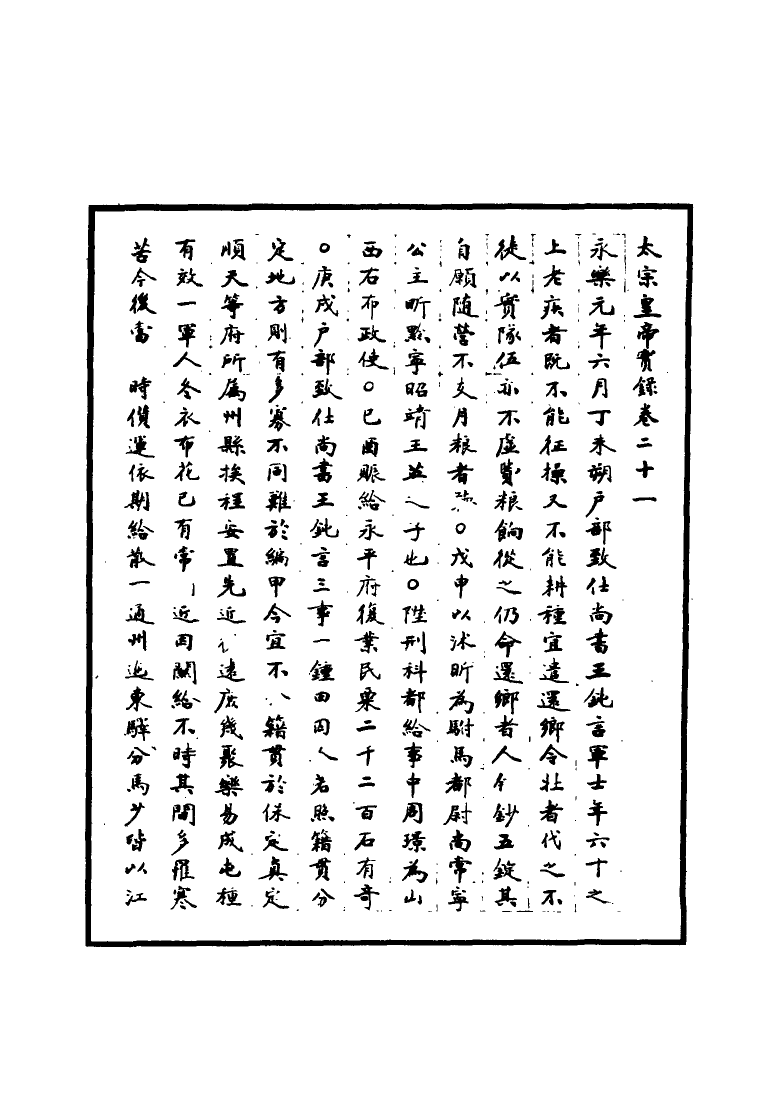 太宗皇帝實錄卷二十一
永樂元年六月丁未朔戶部致仕尚書王鈍言軍士年六十之
上老疾者既不能征操又不能耕種宜遣還鄉令壯者代之不
徒以實隊伍亦不虛費粮餉從之仍命還鄉者人給鈔五錠其
自願隨營不支月粮者聽○戊申以沐昕為駙馬都尉尚常寧
公主昕黔寧昭靖王英之子也○陞刑科都給事中周璟為山
西右布政使○己酉賑給永平府復業民粟二千二百石有奇
○庚戌戶部致仕尚書王鈍言三事一種田囚人若照籍貫分
定地方則有多寡不同難於編甲今宜不 籍貫於保定真定
順天等府所屬州縣挨程安置先近 遠庶幾聚樂易成屯種
有效一軍人冬衣布花已有常 近因關給不時其間多罹寒
苦今後當 時儹運依期給散一通州迤東驛分馬少皆以江